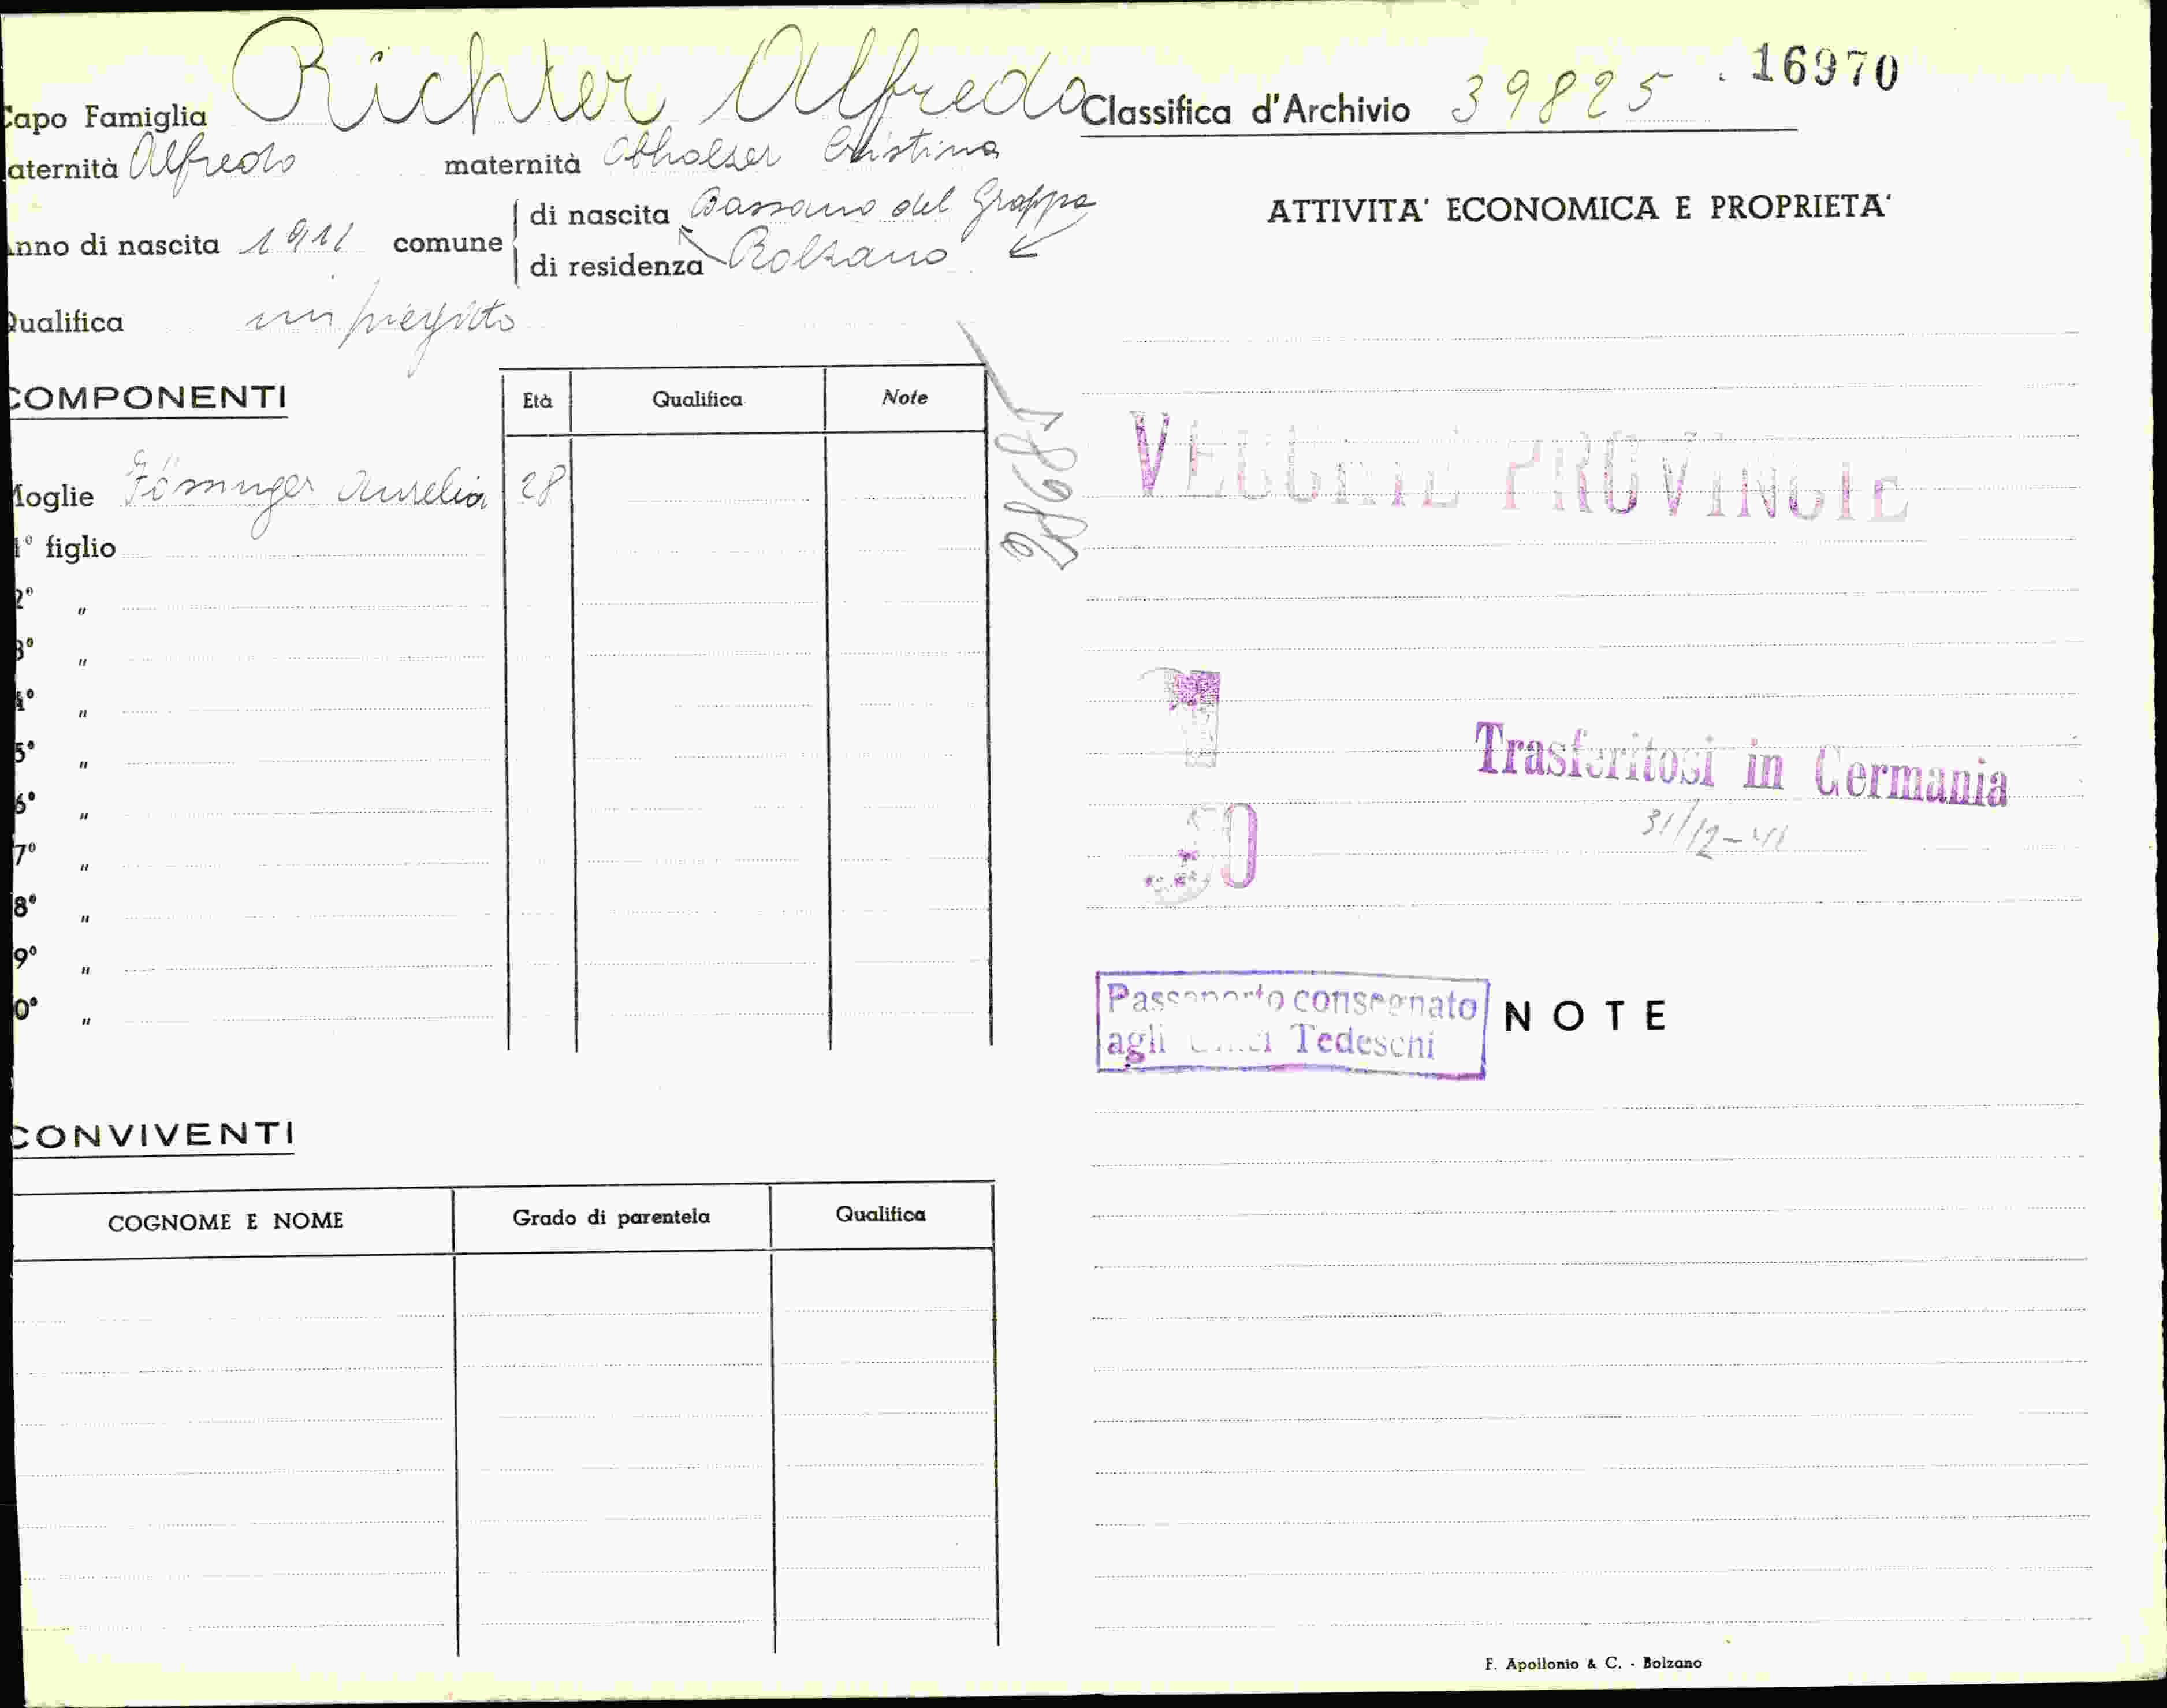 Capo Famiglia Richter Alfredo
aternità Alfredo maternità Obholzer Cristina
Anno di nascita 1911 comune di nascita Bassano del Grappa
di residenza Bolzano
Qualifica impiegato
COMPONENTI Età Qualifica Note
Moglie Aurelia 28
1° figlio
2° "
3° "
4° "
5° "
6° "
7° "
8° "
9° "
0° "
CONVIVENTI
COGNOME E NOME Grado di parentela Qualifica
Classifica d'Archivio 39825 16970
ATTIVITA' ECONOMICA E PROPRIETA'
VECCHIE PROVINCIE
Trasferitosi in Germania
31/12-41
Passaporto consegnato
agli Uffici Tedeschi
NOTE
F. Apollonio & C. - Bolzano